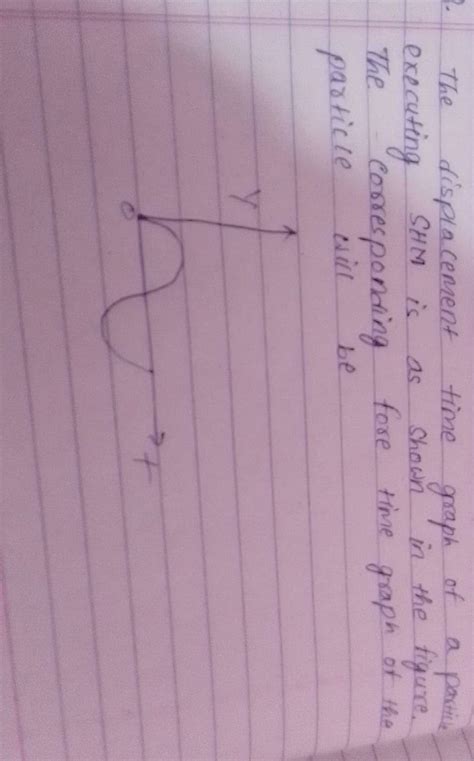 The displacement time graph of a particle
executing SHM is as shown in the figure.
The corresponding fore time graph of the
particle will be
Y
O
t